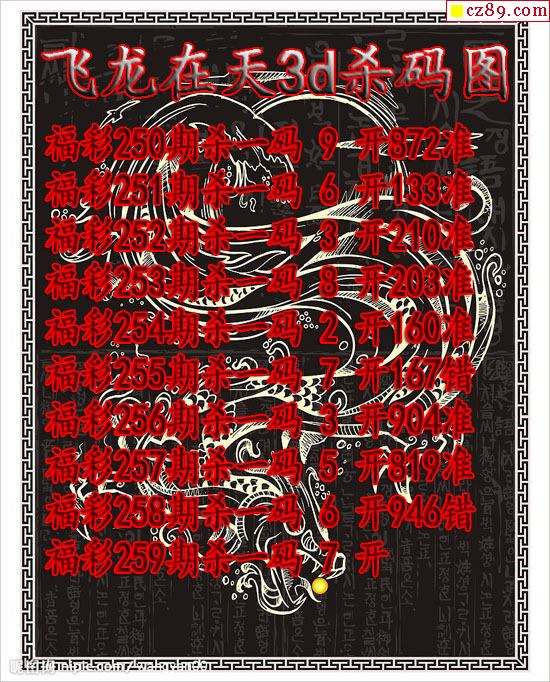 cz89.com
飞龙在天3d杀码图
福彩250期杀一码 9 开872准
福彩251期杀一码 6 开133准
福彩252期杀一码 3 开210准
福彩253期杀一码 8 开203准
福彩254期杀一码 2 开160准
福彩255期杀一码 7 开167错
福彩256期杀一码 3 开904准
福彩257期杀一码 5 开819准
福彩258期杀一码 6 开946错
福彩259期杀一码 7 开